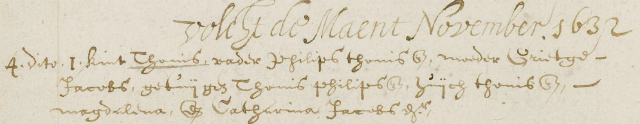 volcht de Maent November. 1632
4. dito. 1. kint Thonis, vader philips thonis &, moeder Grietge
Jacobs, getuijges Thonis philips &, Huijch thonis &,
magdalena, & Catharina Jacobs dr.